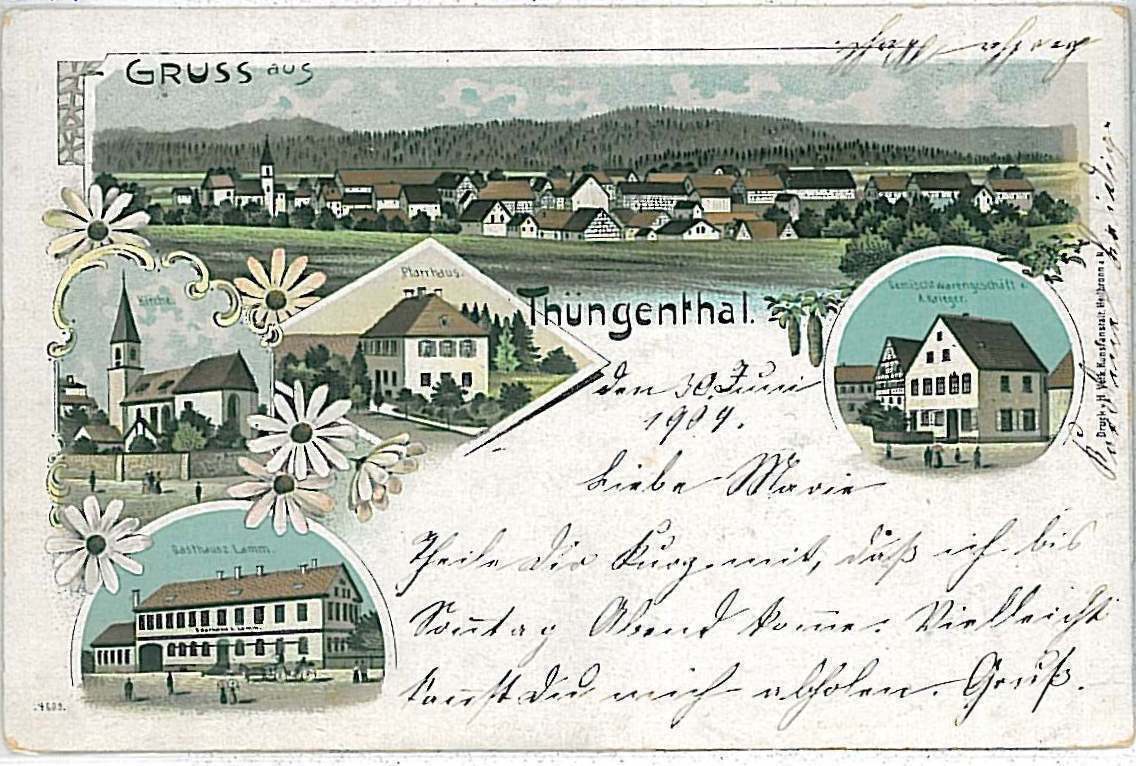 GRUSS aus
Thüngenthal.
Kirche.
Pfarrhaus.
Gemischt Warengeschäft v.
A. Krieger.
Gasthaus z. Lamm.
Gasthaus z. Lamm.
Druck v. H. Kunstanstalt Heilbronn a. N.
4609.
den 30. Juni
1904.
Liebe Marie
Theile Dir Kurz mit, daß ich bis
Sontag Abend komme. Vielleicht
kannst Du mich abholen. Gruß.